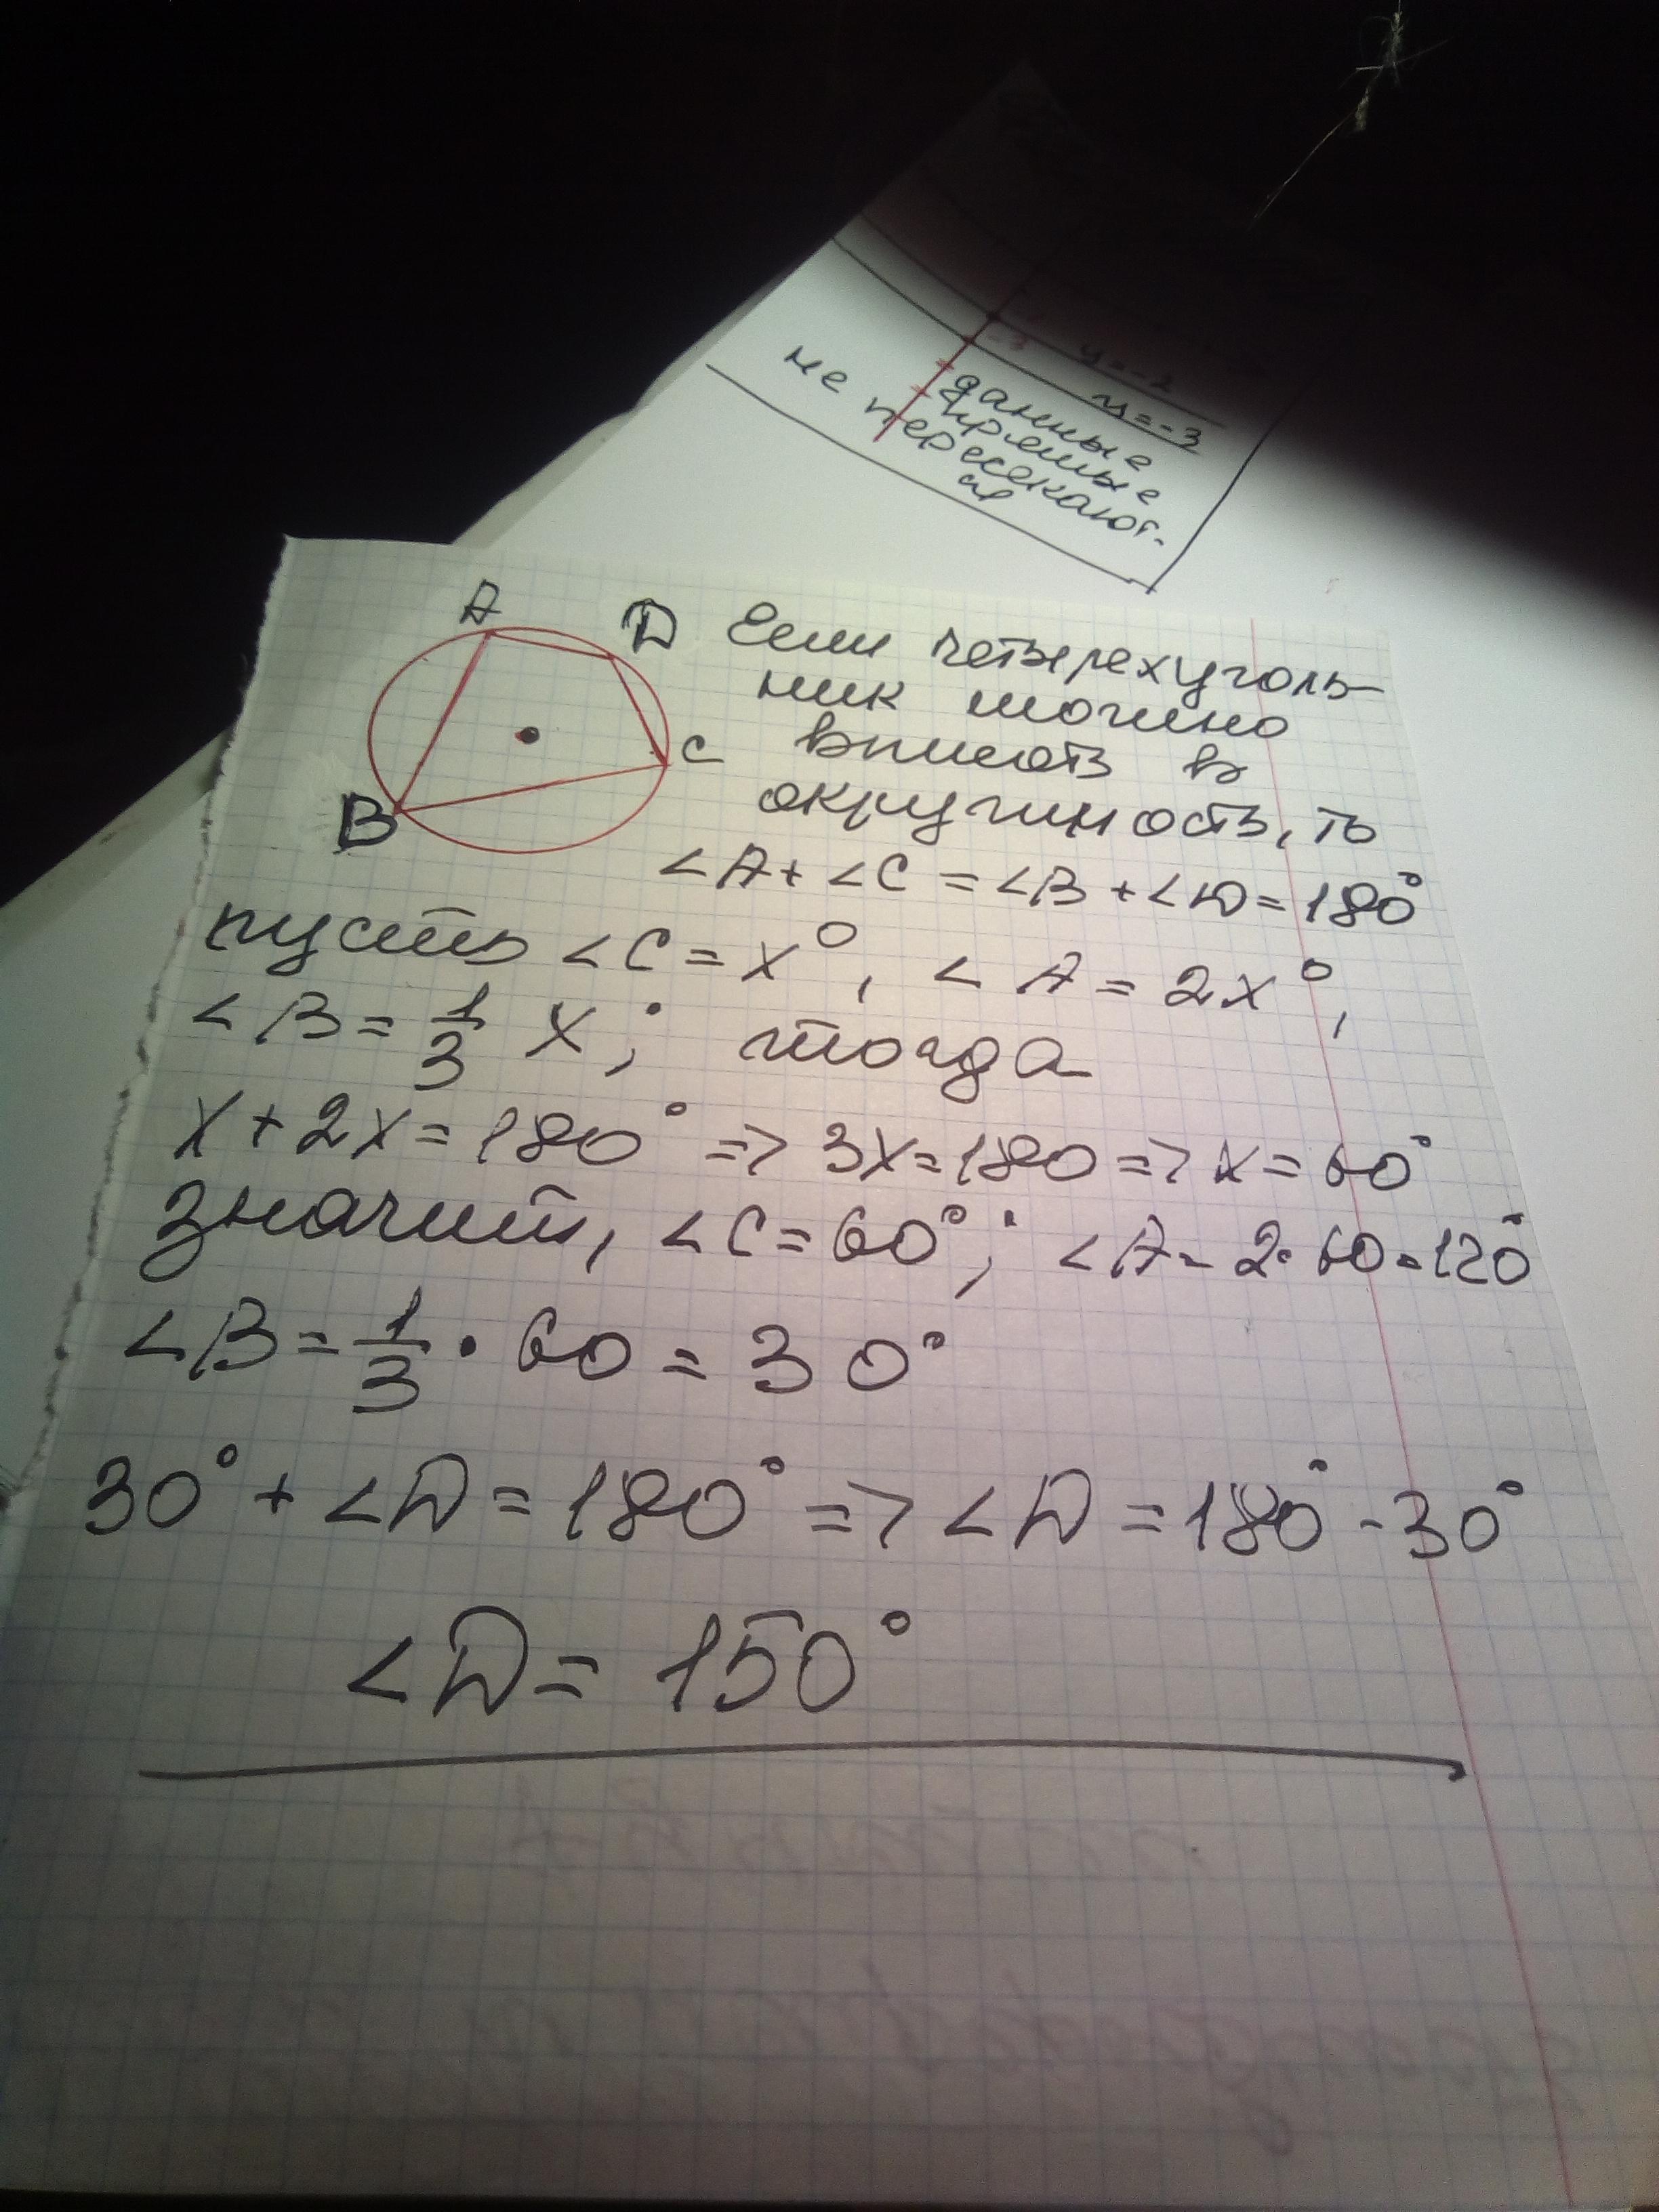 y=-2
-3
y=-3
данные
прямые
не пересекают-
ся
A
D
C
B
Если четырехуголь-
ник можно
вписать в
окружность, то
∠A + ∠C = ∠B + ∠D = 180°
пусть ∠C = x°, ∠A = 2x°,
∠B = 1/3 x; тогда
x + 2x = 180° => 3x = 180 => x = 60°
значит, ∠C = 60°; ∠A = 2·60 = 120°
∠B = 1/3 · 60 = 30°
30° + ∠D = 180° => ∠D = 180° - 30°
∠D = 150°